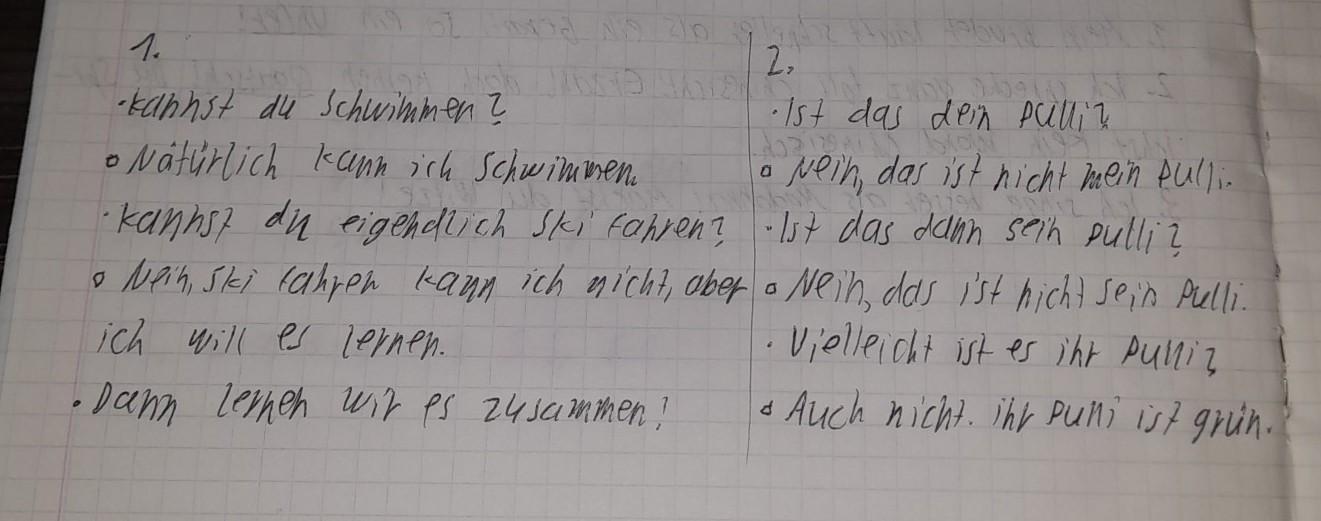 1.
· kannst du schwimmen?
o Natürlich kann ich schwimmen.
· kannst du eigendlich ski fahren?
o Nein, ski fahren kann ich nicht, aber
ich will es lernen.
· Dann lernen wir es zusammen!
2.
· Ist das dein pulli?
o Nein, das ist nicht mein pulli.
· Ist das dann sein pulli?
o Nein, das ist nicht sein Pulli.
· Vielleicht ist es ihr pulli?
o Auch nicht. ihr pulli ist grün.